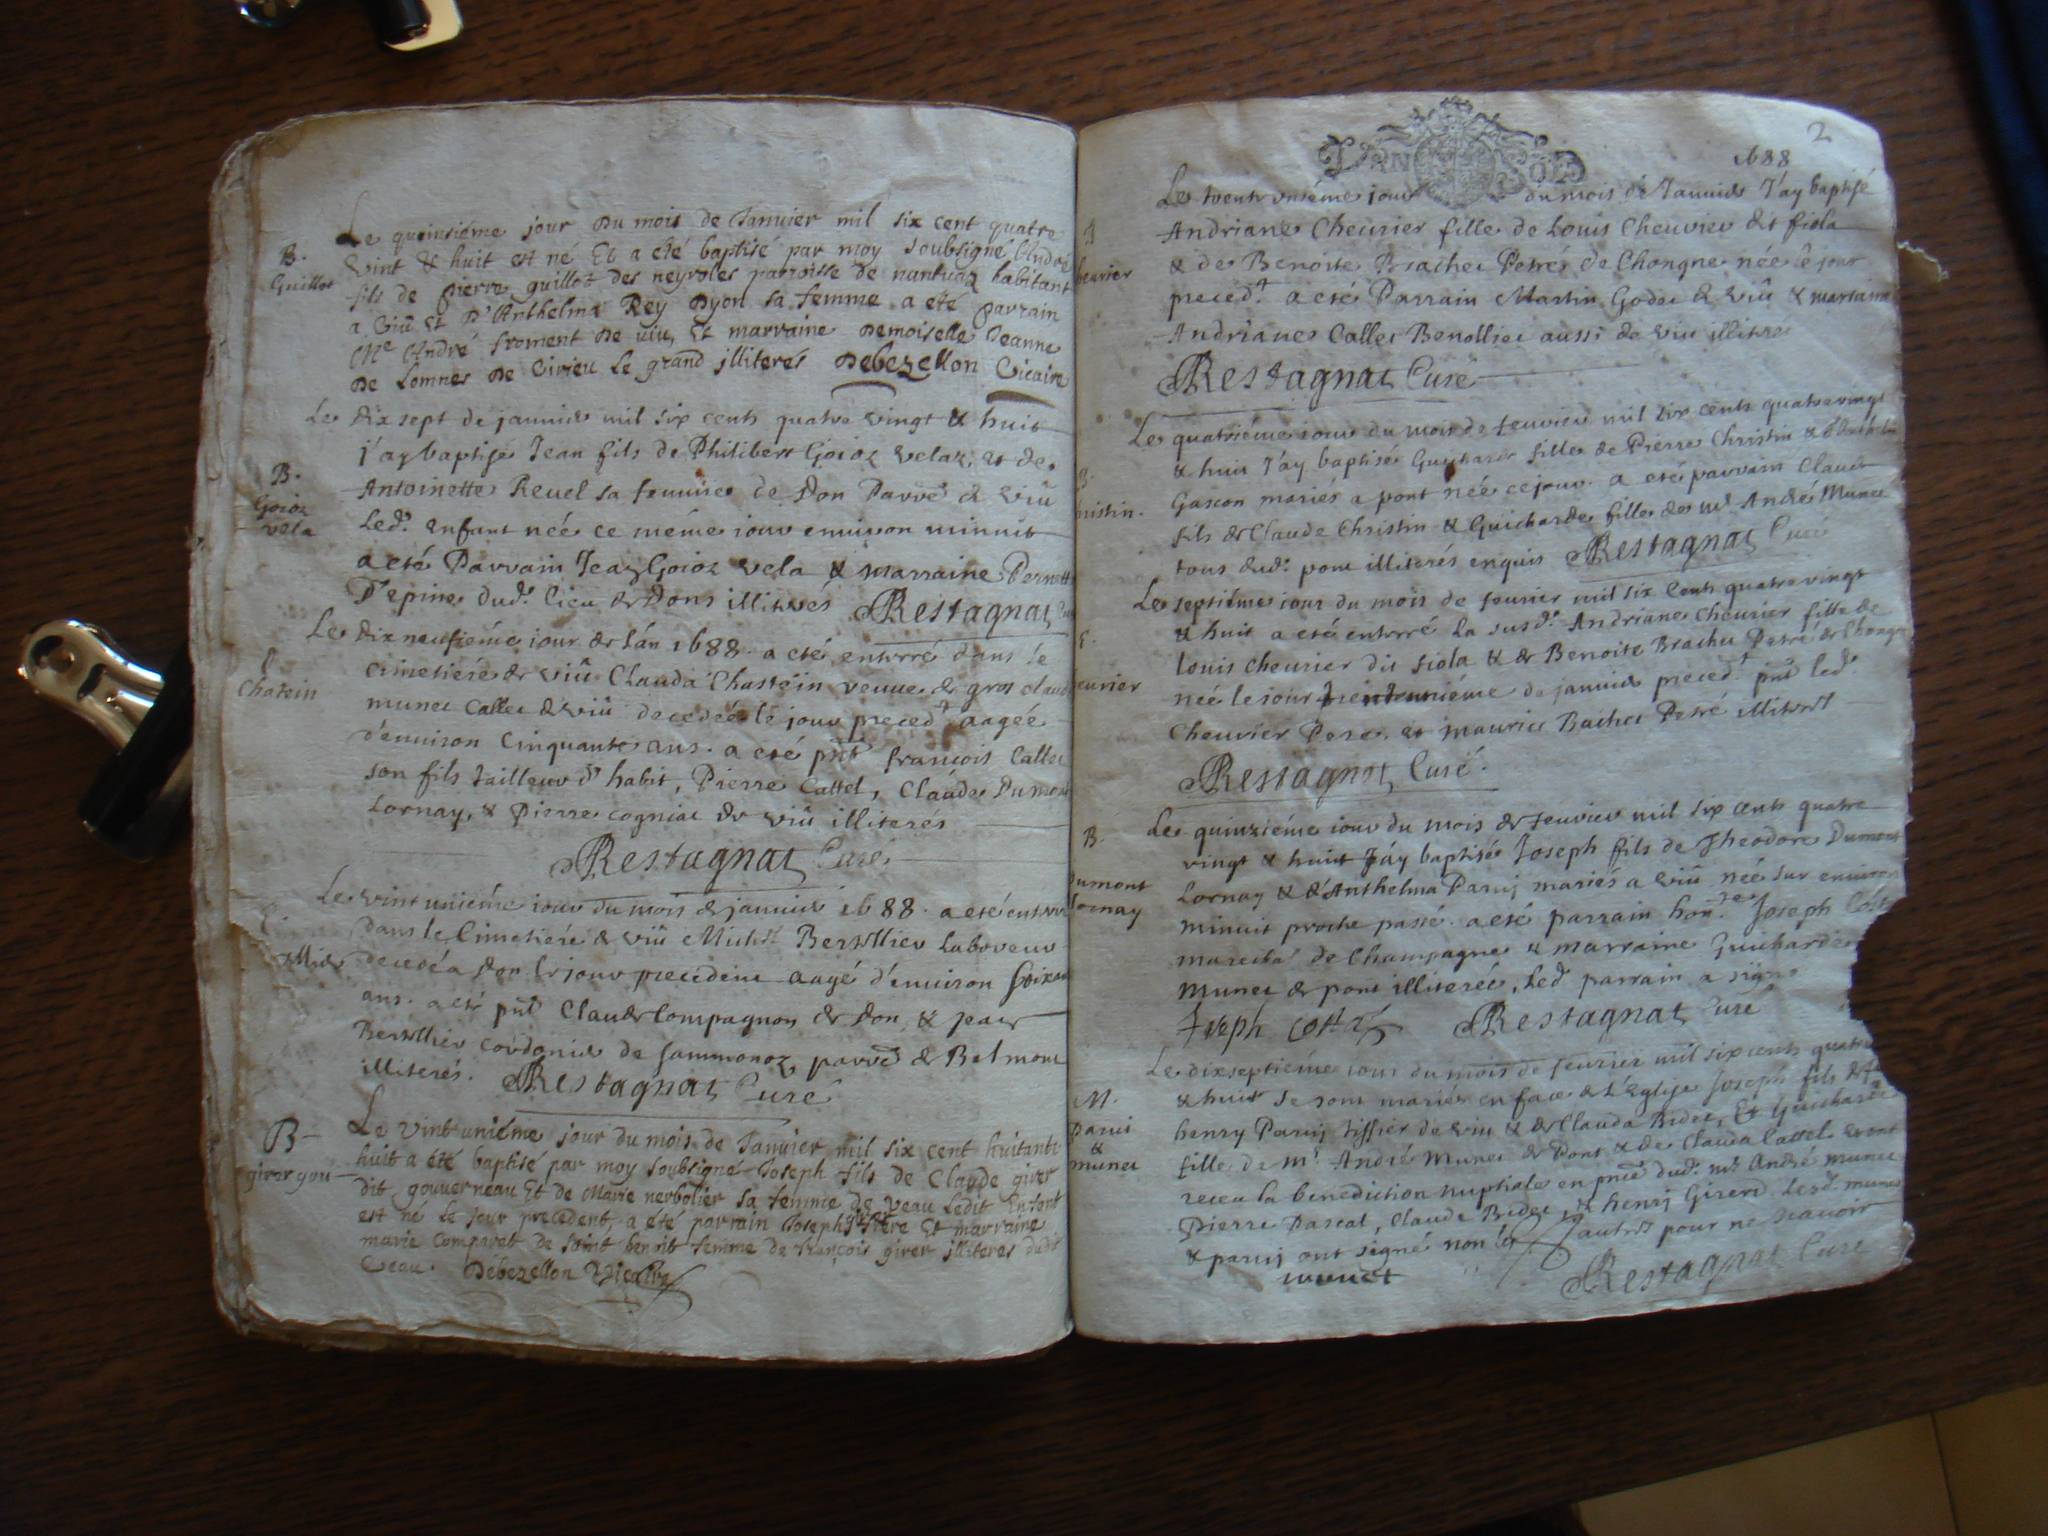 B.
Guillot
Le quinsiéme jour Du mois de Janvier mil six cent quatre
vint & huit est né Et a eté baptisé par moy soubsigné André
fils de pierre guillot des neyroles parroisse de nantuaz habitant
a Viû Et D'Anthelma Rey Dyon sa femme a eté parrain
Me André froment De viu, Et marraine Demoiselle Jeanne
De Lomnes De Virieu Le grand illiterés Debezellon Vicaire
B.
Goioz
vela
Le dix sept de janvier mil six cents quatre vingt & huit
j'ay baptisé Jean fils de Philibert Goioz velaz, et de
Antoinette Revel sa femme de Don Parre de viû
Led. enfant née ce méme jour environ minuit
a eté Parrain Jean Goioz vela & marraine Pernette
D'epine dud. lieu de Dons illiterés Restagnat Curé
Chatein
Le dix neufiéme jour de l'an 1688. a eté enterré dans le
cimetiere de viû Clauda Chastein veuve de gros claude
munet Callet de viû decedée le jour preced.t aagée
d'environ Cinquante ans. a eté pnt françois Callet
son fils tailleur d'habit, Pierre Cattel, Claude Dumont
Lornay, & Pierre cogniat de viû illiterés
Restagnat Curé
Le vint uniéme jour du mois de janvier 1688. a eté enterré
dans le Cimetiére de viû Michel Bertllier laboureur
decedé a Don le jour precedent aagé d'environ soixante
ans. a eté pnt Claude Compagnon de Don, & Jean
Bertllier cordonier de Sammonoz parre de Belmont
illiterés. Restagnat Curé
B
girer gou
Le vint uniéme jour du mois de Janvier mil six cent huitante
huit a été baptisé par moy soubsigné Joseph fils de Claude girer
dit gouverneau Et de Marie nerbolier sa femme de Veau Ledit Enfant
est né le jour precedent, a été parrain Joseph frére Et marraine
marie Comparet de Saint benoit femme de françois girer illiteres dudit
Veau. Debezellon Vicaire
2
1688
Le trente uniéme jour du mois de Janvier J'ay baptisé
Andriane Cheurier fille de Louis Cheurier dit fiola
& de Benoite Brachet Petré de Chongne née le jour
preced.t a eté Parrain Martin Godet de viû & marraine
Andriane Callet Benollier aussi de viû illiteré
Restagnat Curé
Le quatriéme jour du mois de feuvrier mil six cents quatre vingt
& huit J'ay baptisé Guicharde fille de Pierre Christin &
Gascon mariés a pont née ce jour. a eté parrain Claude
fils de Claude Christin & Guicharde fille de Mr André Munet
tous dud. pont illiterés enquis Restagnat Curé
Le septiéme jour du mois de feurier mil six cents quatre vingt
& huit a eté enterré la susd. Andriane Cheurier fille de
Louis cheurier dit fiola & de Benoite Brachet Petré de Chongne
née le jour trente uniéme de janvier preced.t pnt led.
Cheurier Pere, et maurice Bachet Petré illiterés
Restagnat Curé.
B.
Dumont
Lornay
Le quinziéme jour du mois de feuvrier mil six cents quatre
vingt & huit J'ay baptisé Joseph fils de Theodore Dumont
Lornay & d'Anthelma Parvij mariés a viû né sur environ
minuit proche passé. a eté parrain hon.te Joseph Costaz
marechal de Champagne & marraine Guicharde
Munet de pont illiterée, Led. parrain a signé
Joseph Costaz Restagnat Curé
M.
Parvi
&
munet
Le dixseptiéme jour du mois de feurier mil six cents quatre vingt
& huit se sont mariés en face de L'Eglise Joseph fils de
henry Parvij tissier de viu & de Clauda Bidet, Et Guicharde
fille de Mr André Munet de Pont & de Clauda Cattel ayant
receu la benediction nuptiale en pnce dud. Mr André munet
Pierre Pascal, Claude Bidet, & henry Girerd. Lesd. munet
& parvij ont signé non les autres pour ne scavoir
munet Restagnat Curé